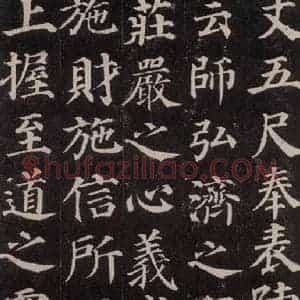 丈五尺奉表
云師弘濟之
莊嚴之心義
施財施信所
上握至道之
Shufaziliao.COM